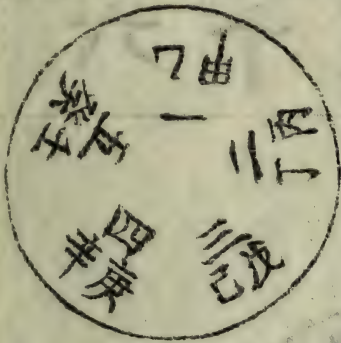 甲乙一
丙丁二
戊己三
庚辛四
壬癸五